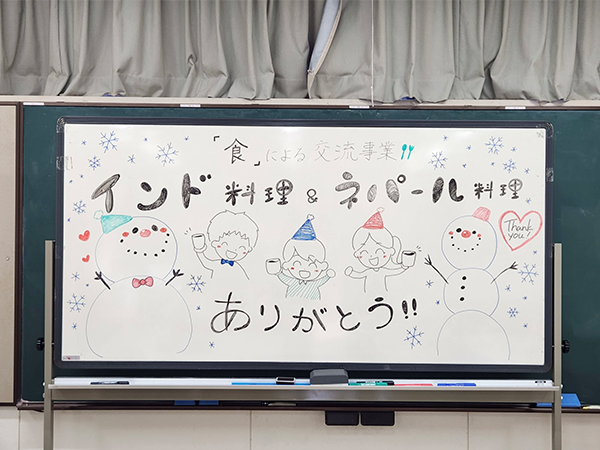 「食」による交流事業
インド料理&ネパール料理
Thank you!
ありがとう!!